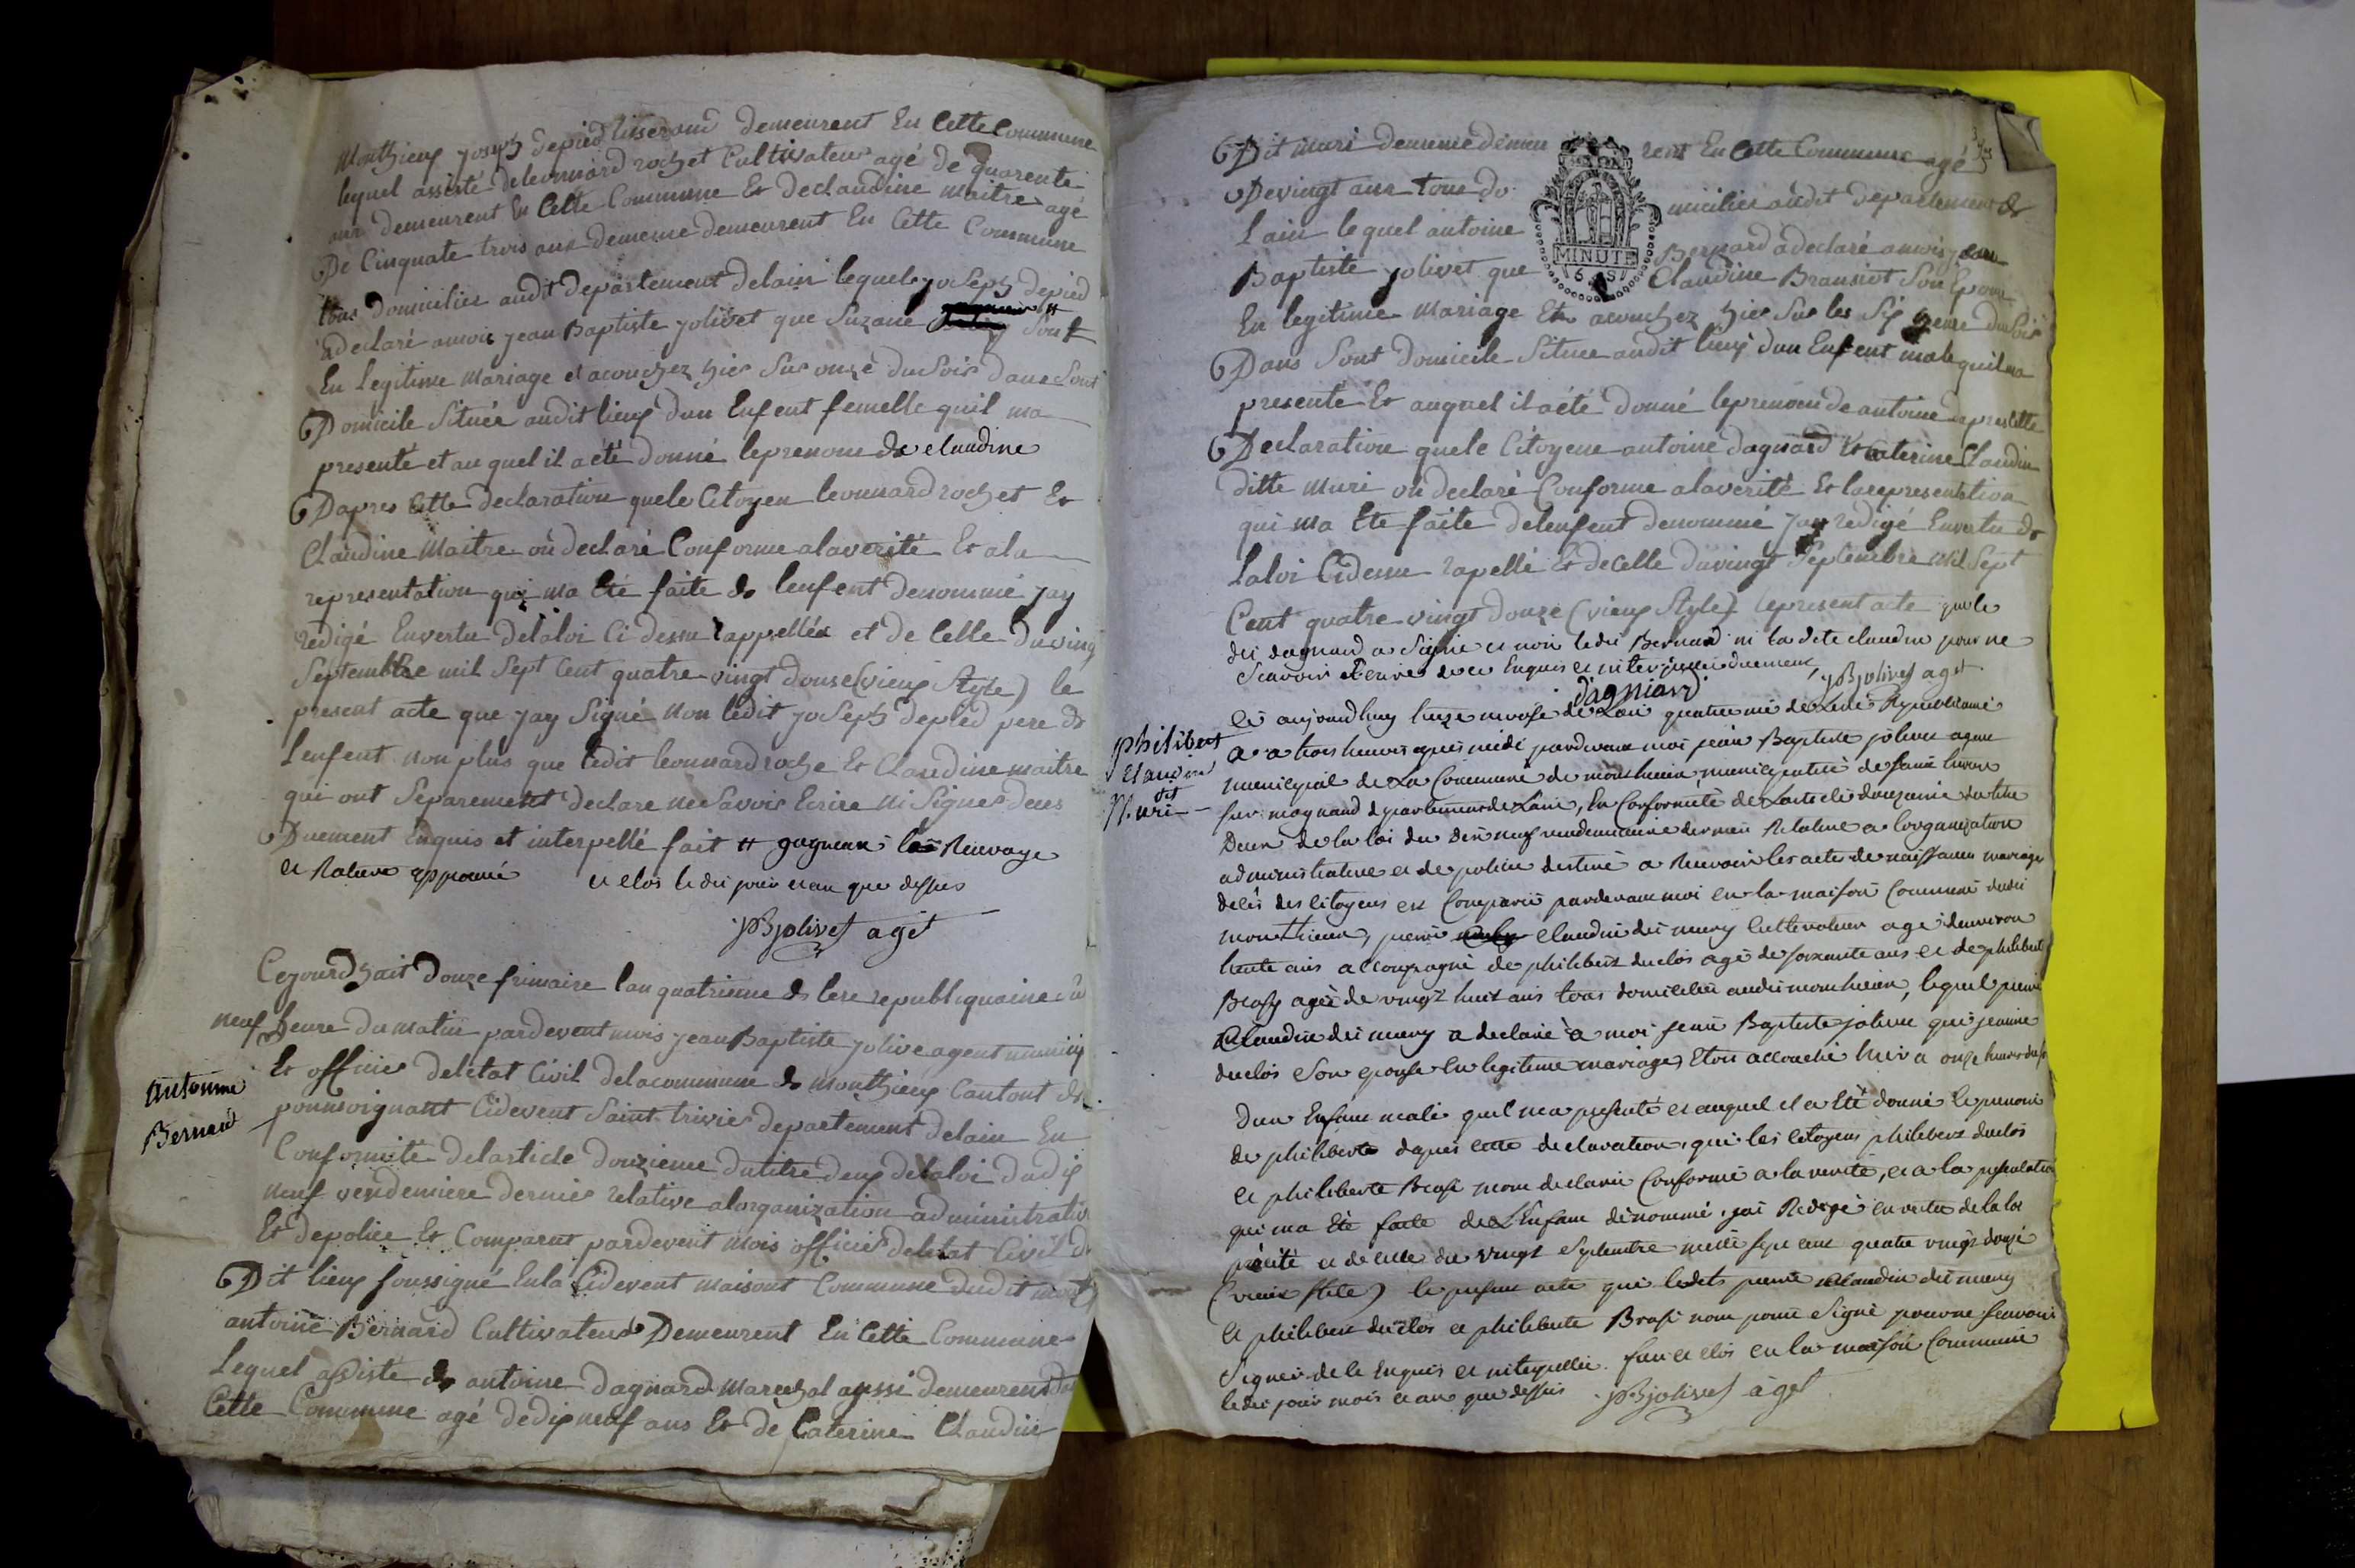 Monthieux joseph depied tisserand demeurent En Cette Commune
lequel assisté de leonnard rochet Cultivateur agé de quarente
ans demeurent En Cette Commune Et de claudine maitre agé
De Cinquate trois ans dememe demeurent En Cette Commune
tous domicilies audit departement de lain lequel joseph depied
a declaré amoi jean Baptiste jolivet que Suzane Sont
En Legitime Mariage et acouchez hier Sur onze du Soir dans Sont
Domicile Situee audit lieux dun Enfent femelle quil ma
presenté et au quel il a été donné le prenom de claudine
Dapres Cette declaration que le Citoyen leonnard rochet Et
Claudine Maitre on declaré Conforme alaverité Et ala
representation qui ma Eté faite de lenfent denommé jay
redigé Envertu de la loi Ci dessu rappellée et de Celle du ving
Septembre mil Sept Cent quatre vingt douse (vieux Style) le
present acte que jay Signé non ledit joseph depied pere de
Lenfent non plus que ledit leonnard roche Et Claudine maitre
qui ont Separement declare ne Savoir Ecrire ni Signer deus
Duement Enquis et interpellé fait # gagneux Renvoye
et Rature approuvé et clos le dit jour et an que dessus
JB jolivet agt
Cejourdhuit douze frimaire lan quatrieme de lere republiquaine a
neuf heure du matin pardevent mois jean Baptiste jolive agent munici
Et officier deletat Civil delacommune de Monthieux Cantont de
antoinne
Bernard
ponnsoignant Cidevent Saint trivier departement delain En
Conformite delarticle douzieme dutitre deux delaloi dudix
neuf vendemiere dernier relative alorganization administrativ
Et depolice Et Comparut pardevent mois officier deletat Civil d
Dit lieux soussigné Enla Cidevent maisont Commune dudit mont
antoine Bernard Cultivateur Demeurent En Cette Commune
Lequel assiste de antoine dagnard Marechal aussi demeurent d
Cette Commune agé de dix neuf ans Et de Caterine Claudin
Dit muri dememe demeu rent En Cette Commune agé
De vingt ans tous do micilies audit departement de
Lain lequel antoine Bernard a declaré amois jean
Baptiste jolivet que Claudine Bransiot Son Epous
MINUTE
En legitime Mariage Et acouchez hier Sur les Six heure du Soir
Dans Sont domicile Situee audit lieux dun Enfent male quil ma
presenté Et auquel il a été donné le prenom de antoine apres Cette
Declaration que le Citoyene antoine dagnard Et Caterine Claudin
ditte Muri on declaré Conforme alaverité Et larepresentation
qui ma Eté faite delenfent denommé jay redigé Envertu de
Laloi Cidessu rapellé Et decelle du vingt Septembre mil Sept
Cent quatre vingt douze (vieux Style) lepresent acte que le
dit dagnard a Signé et non ledit Bernard ni la dite claudin pour ne
Scavoir Ecrire de ce Enquis et interpellé duement
dagniard JB jolivet agt
philibert
Claudin
dit
Muri
Ce aujourdhuy treze frimaire de Lan quatrieme de Lere Republicaine
a trois heures apres midi pardevant moi jean Baptiste jolivet agent
municipal de La Commune de monthieux, municipalité de saint trivier
sur moignand departement de Lain, En Conformité de Larticle douzieme du titre
Deux de la loi du dix neuf vendemiaire dernier Relative a lorganization
administrative et de police destiné a Recevoir les actes de naissance mariages
décès des Citoyens est Comparu pardevant moi en la maison Commune dudit
monthieux, pierre claudin dit mury Cultivateur agé denviron
trente ans accompagné de philibert duclos agé de soixante ans et de philiberte
Brossy agée de vingt huit ans tous domiciliés audit monthieux, lequel pierre
Claudin dit mury a declaré a moi jean Baptiste jolivet que jeanne
duclos Son epouse En legitime mariage, Etoit accouché hier a onze heures du s
Dun Enfant male quil ma presenté et auquel il a Eté donné le prenom
de philibert dapres cette declaration que les citoyens philibert duclos
et philiberte Brossi mont declaré Conforme a la verité, et a la presentation
qui ma Eté faite de LEnfant denommé, jai Redigé en vertu de la loi
précité et de celle du vingt Septembre mille sept cent quatre vingt douze
(vieux stile) le present acte que ledit pierre claudin dit mury
et philibert duclos et philiberte Brossi nont point Signé pour ne scavoir
Signer de le Enquis et interpellé. fait et clos en la maison Commune
ledit jour mois et an que dessus JB jolivet agt